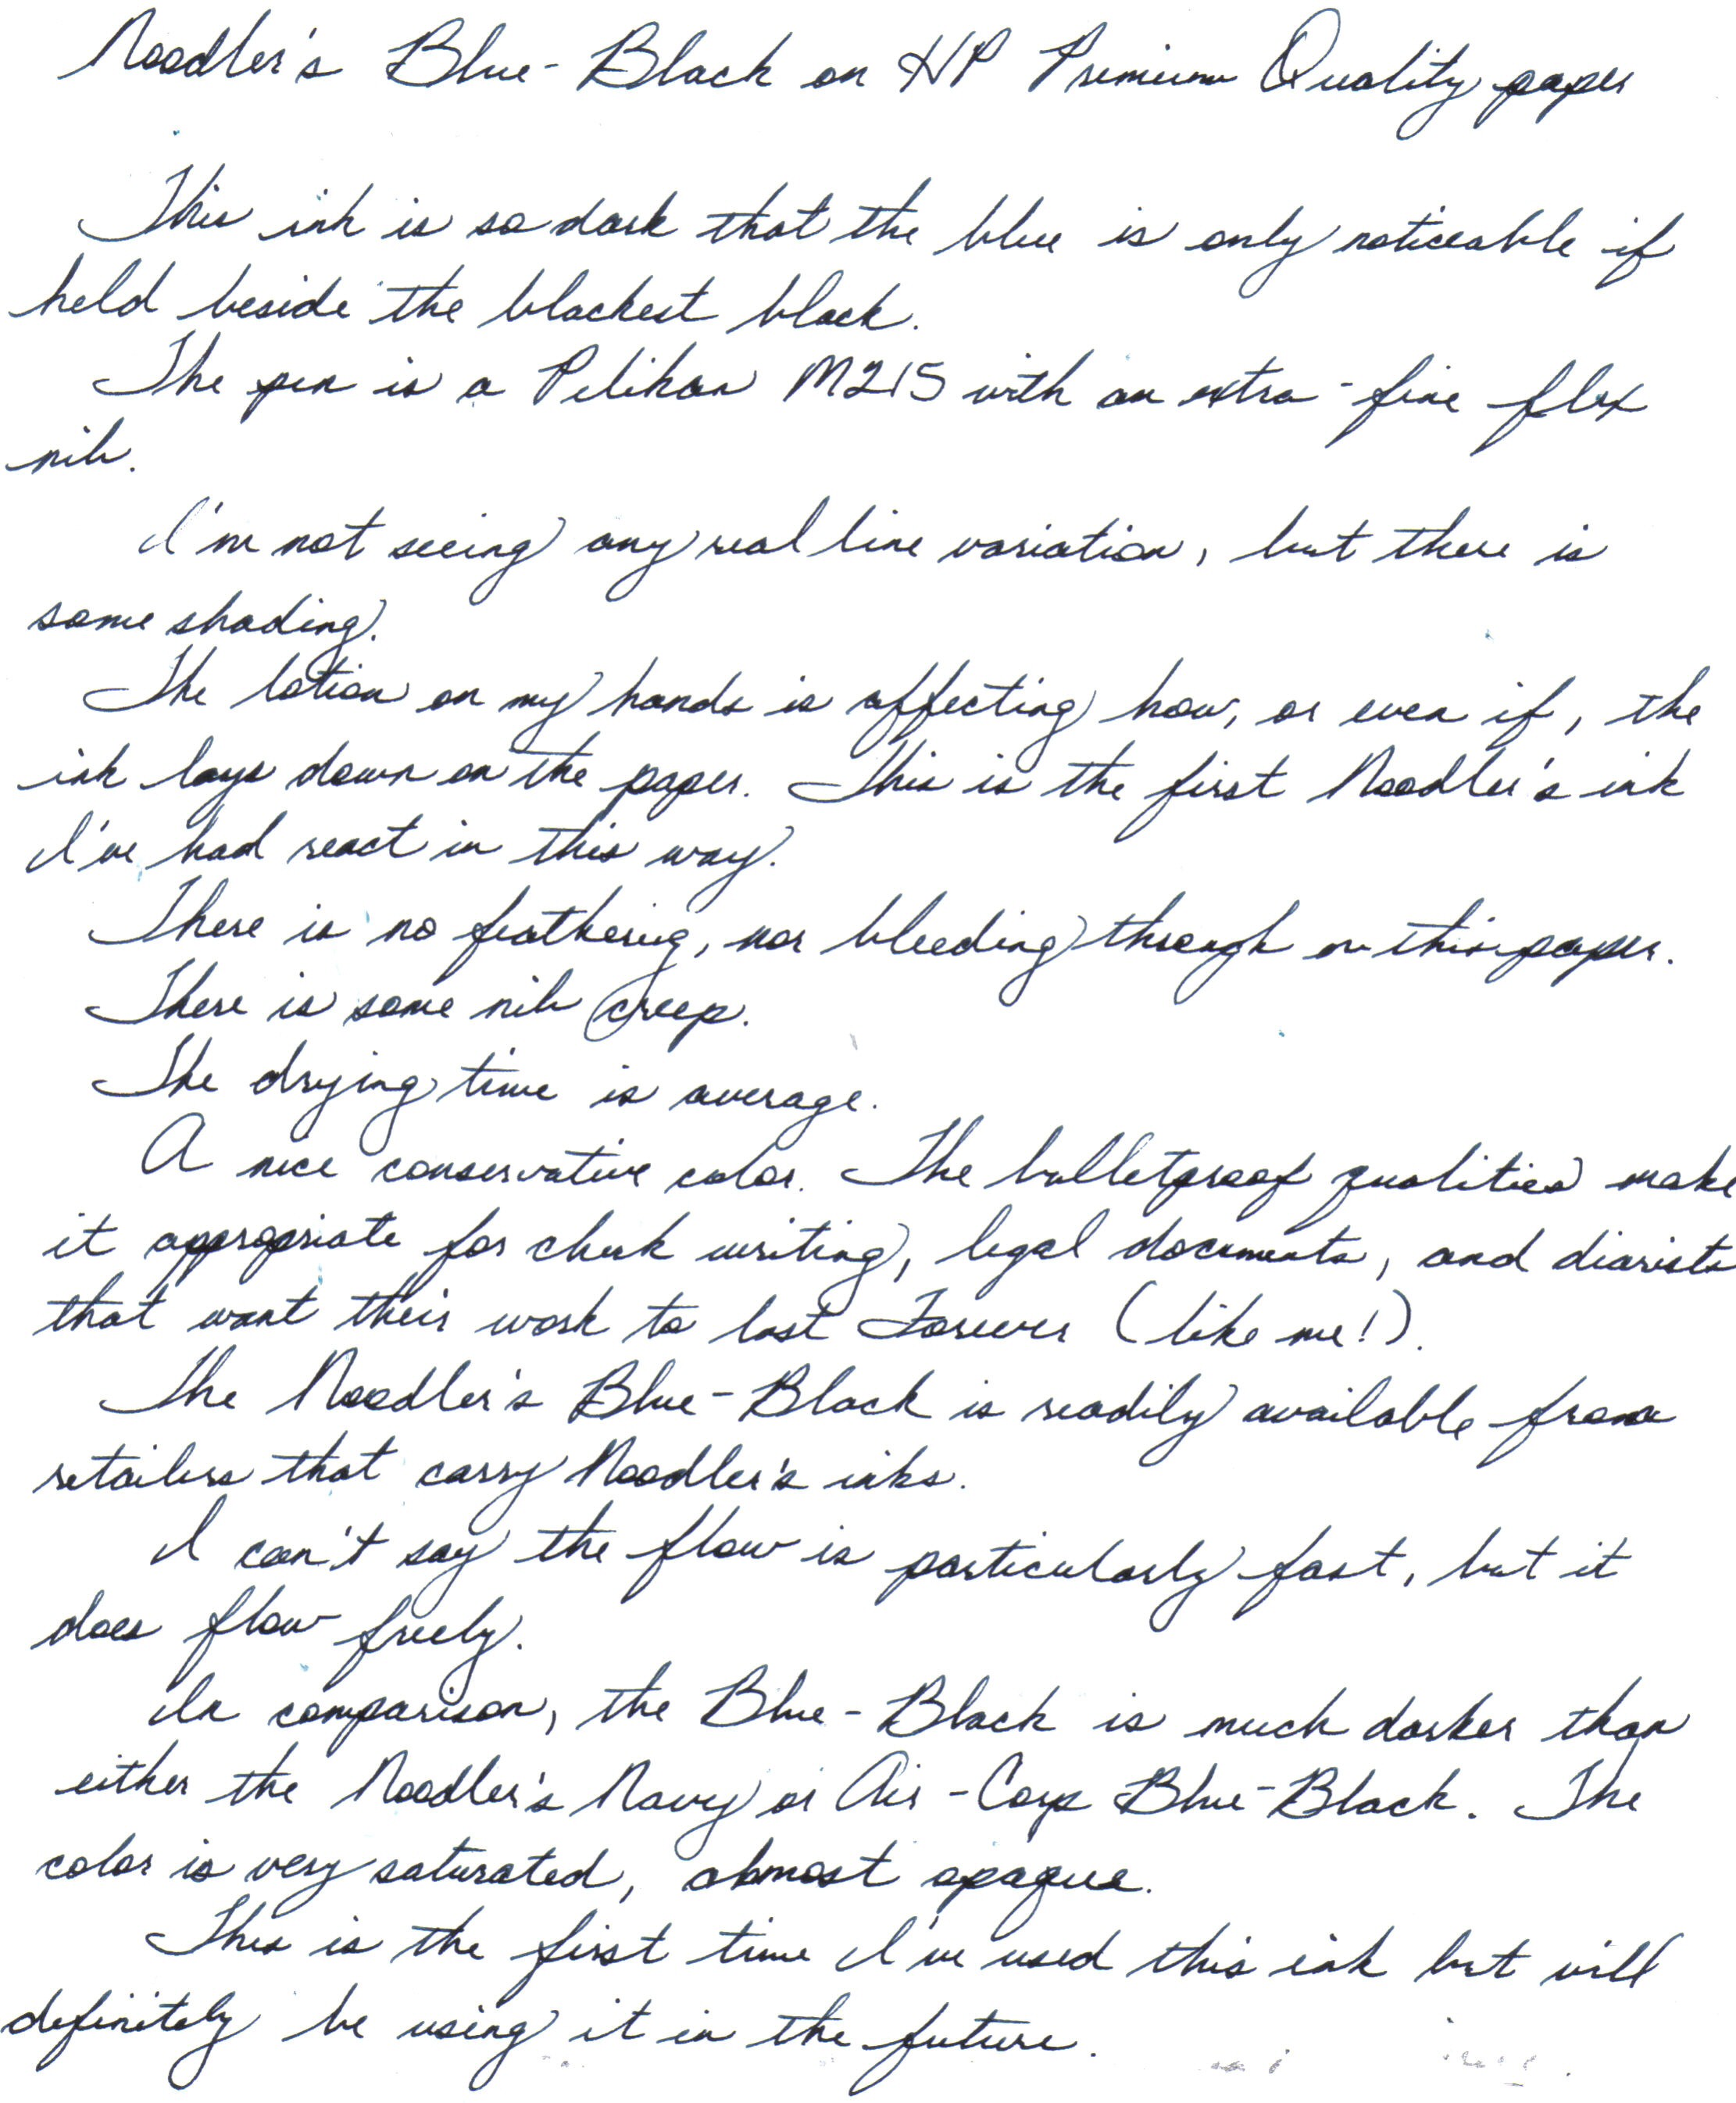 Noodler's Blue-Black on HP Premium Quality paper
This ink is so dark that the blue is only noticeable if
held beside the blackest black.
The pen is a Pelikan M215 with an extra-fine flex
nib.
I'm not seeing any real line variation, but there is
some shading.
The lotion on my hands is affecting how, or even if, the
ink lays down on the paper. This is the first Noodler's ink
I've had react in this way.
There is no feathering, nor bleeding through on this paper.
There is some nib creep.
The drying time is average.
A nice conservative color. The bulletproof qualities make
it appropriate for check writing, legal documents, and diarists
that want their work to last Forever (like me!).
The Noodler's Blue-Black is readily available from
retailers that carry Noodler's inks.
I can't say the flow is particularly fast, but it
does flow freely.
In comparison, the Blue-Black is much darker than
either the Noodler's Navy or Air-Corp Blue-Black. The
color is very saturated, almost opaque.
This is the first time I've used this ink but will
definitely be using it in the future.